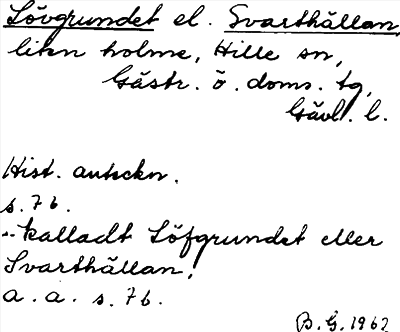 Lövgrundet el. Svarthällan,
liten holme, Hille sn,
Gästr. ö. doms. tg,
Gävl. l.
Hist. anteckn.
s. 76.
.. kalladt Löfgrundet eller
Svarthällan,
a. a. s. 76.
B. G. 1962